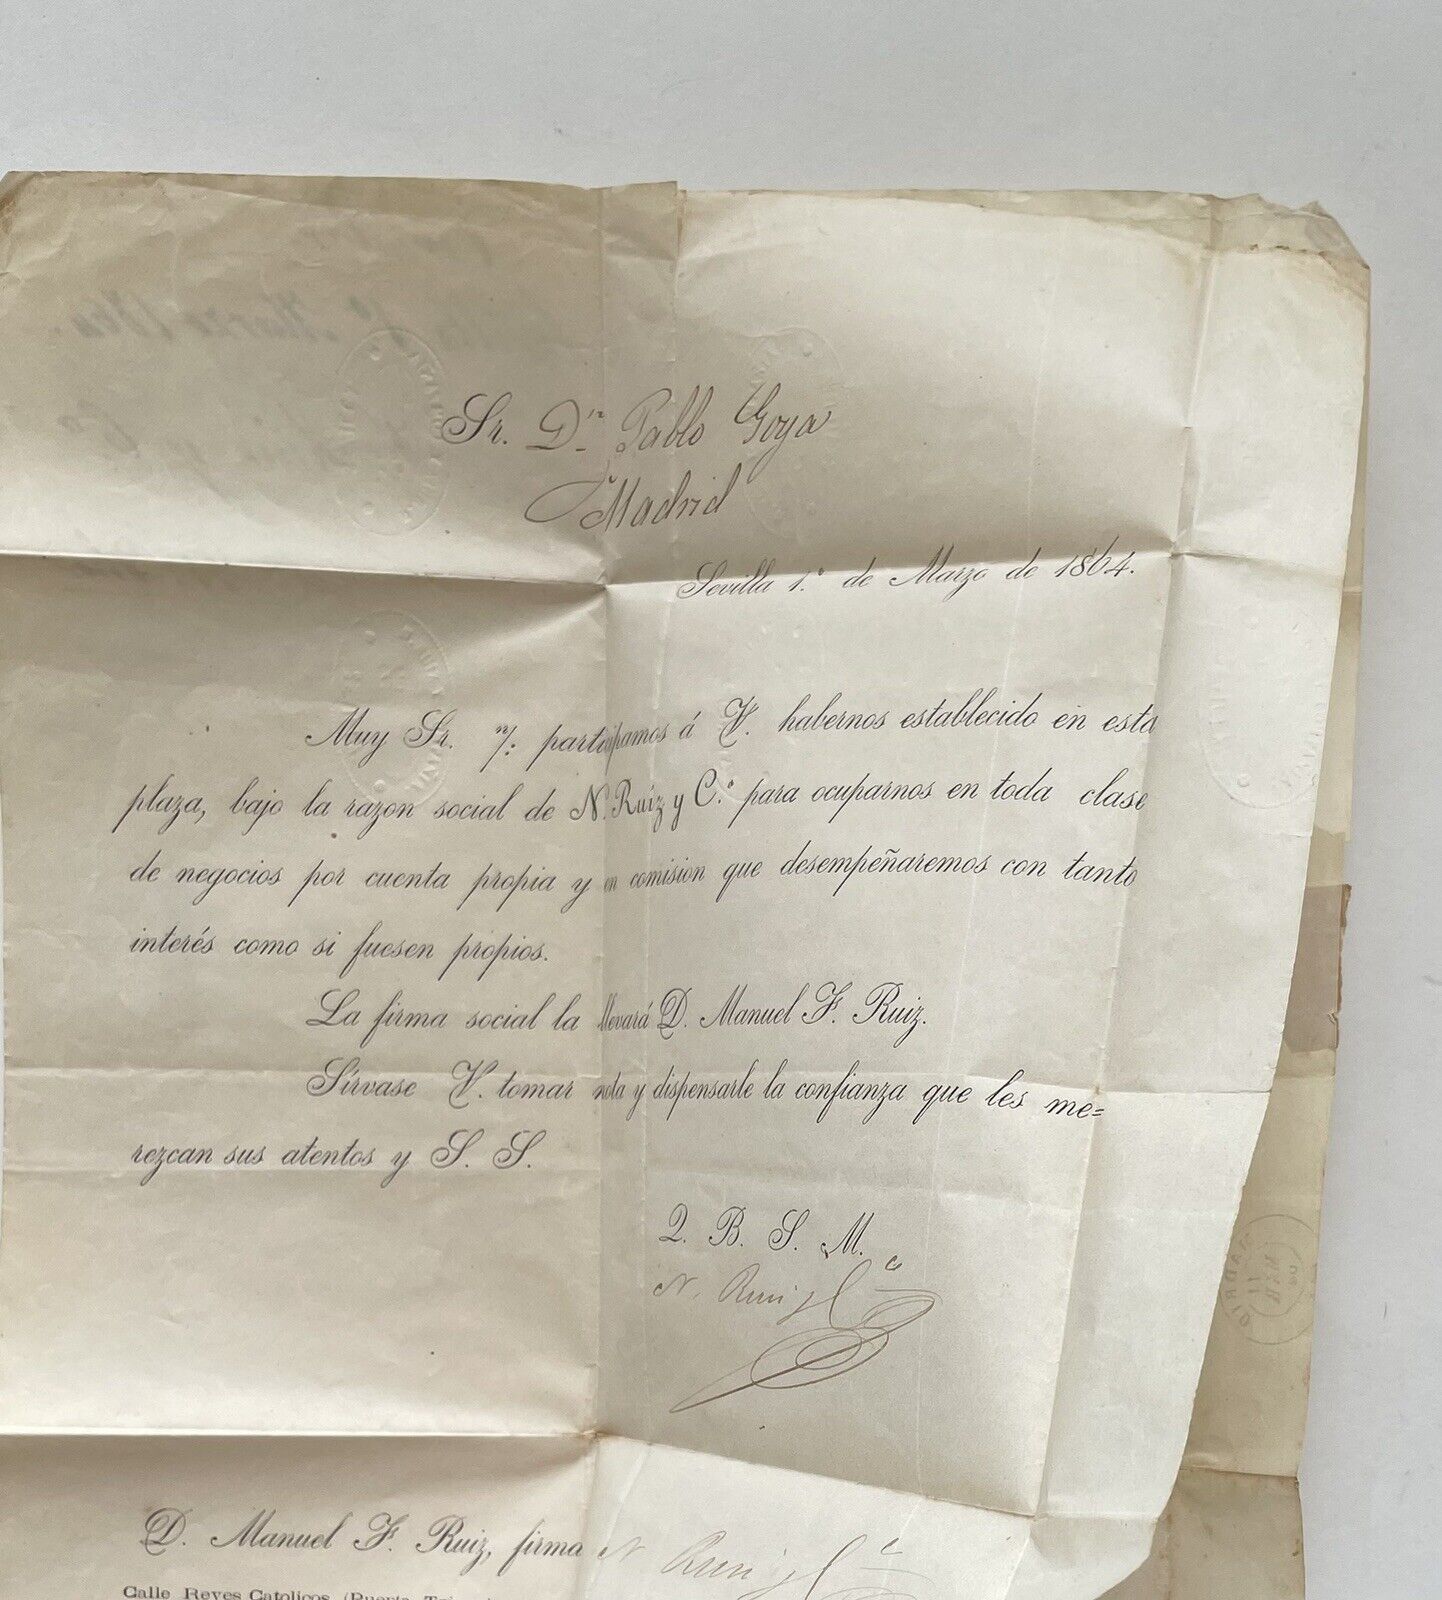 Sr. Dn Pablo Goya
Madrid
Sevilla 1.º de Marzo de 1864.
Muy Sr. n/: participamos á V. habernos establecido en esta
plaza, bajo la razon social de N. Ruíz y C.ª para ocuparnos en toda clase
de negocios por cuenta propia y en comision que desempeñaremos con tanto
interés como si fuesen propios.
La firma social la llevará D. Manuel F. Ruiz.
Sírvase V. tomar nota y dispensarle la confianza que les me=
rezcan sus atentos y S. S.
Q. B. S. M.
N. Ruiz y Cª
D. Manuel F. Ruiz, firma N. Ruiz y Cª
Calle Reyes Catolicos (Puerta
MADRID